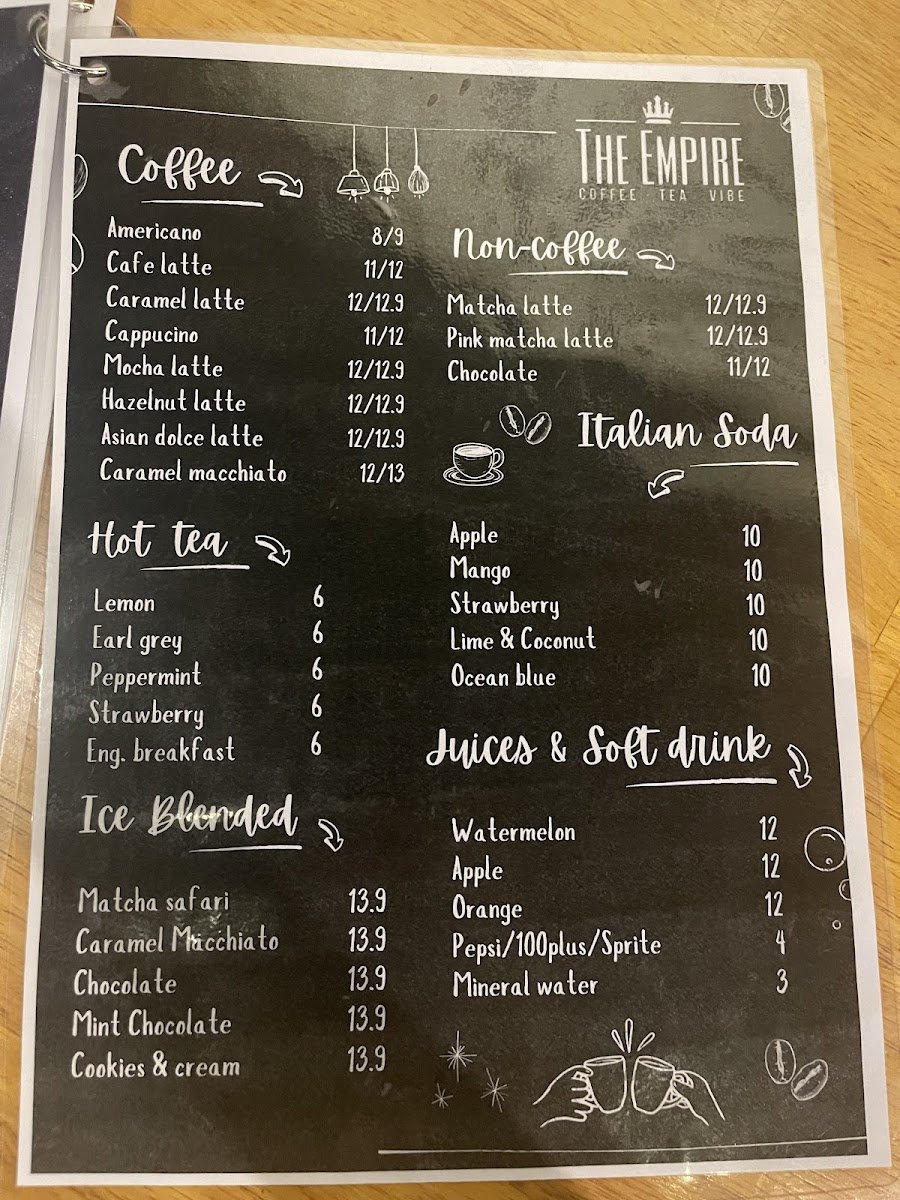 THE EMPIRE
COFFEE TEA VIBE
Coffee
Americano 8/9
Cafe latte 11/12
Caramel latte 12/12.9
Cappucino 11/12
Mocha latte 12/12.9
Hazelnut latte 12/12.9
Asian dolce latte 12/12.9
Caramel macchiato 12/13
Hot tea
Lemon 6
Earl grey 6
Peppermint 6
Strawberry 6
Eng. breakfast 6
Ice Blended
Matcha safari 13.9
Caramel Macchiato 13.9
Chocolate 13.9
Mint Chocolate 13.9
Cookies & cream 13.9
Non-coffee
Matcha latte 12/12.9
Pink matcha latte 12/12.9
Chocolate 11/12
Italian Soda
Apple 10
Mango 10
Strawberry 10
Lime & Coconut 10
Ocean blue 10
Juices & Soft drink
Watermelon 12
Apple 12
Orange 12
Pepsi/100plus/Sprite 4
Mineral water 3